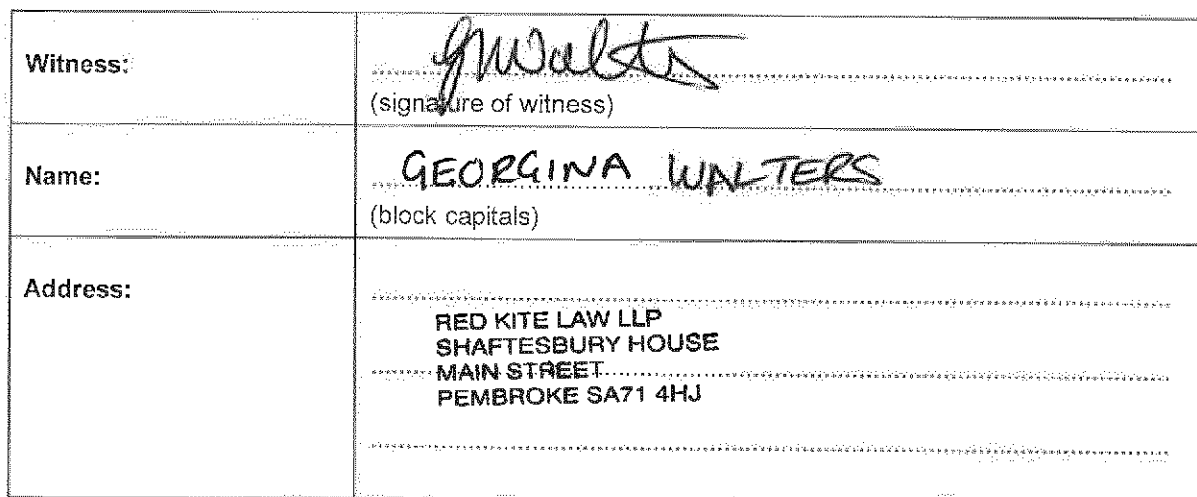 Witness: GWalters
(signature of witness)
Name: GEORGINA WALTERS
(block capitals)
Address:
RED KITE LAW LLP
SHAFTESBURY HOUSE
MAIN STREET
PEMBROKE SA71 4HJ